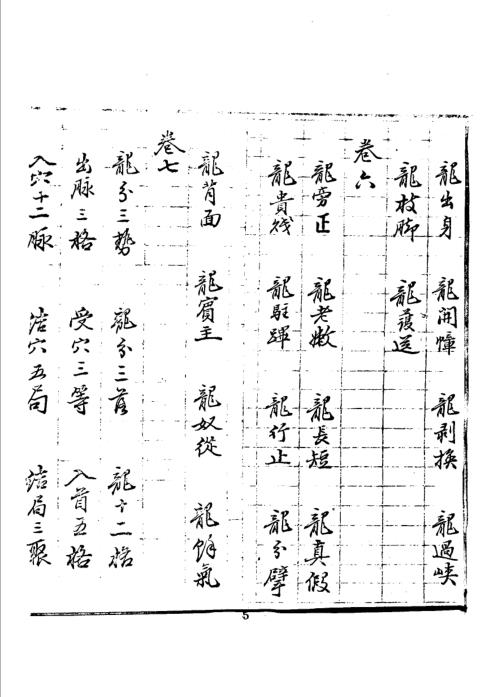 龍出身　龍開幛　龍剥換　龍過峡
龍枝脚　龍護送
卷六
龍旁正　龍老嫩　龍長短　龍真假
龍貴賤　龍駐蹕　龍行止　龍分擘
龍背面　龍賓主　龍奴從　龍餘氣
卷七
龍分三勢　龍分三落　龍十二格
出脉三格　受穴三等　入首五格
入穴十二脉　结穴五局　结局三聚
5